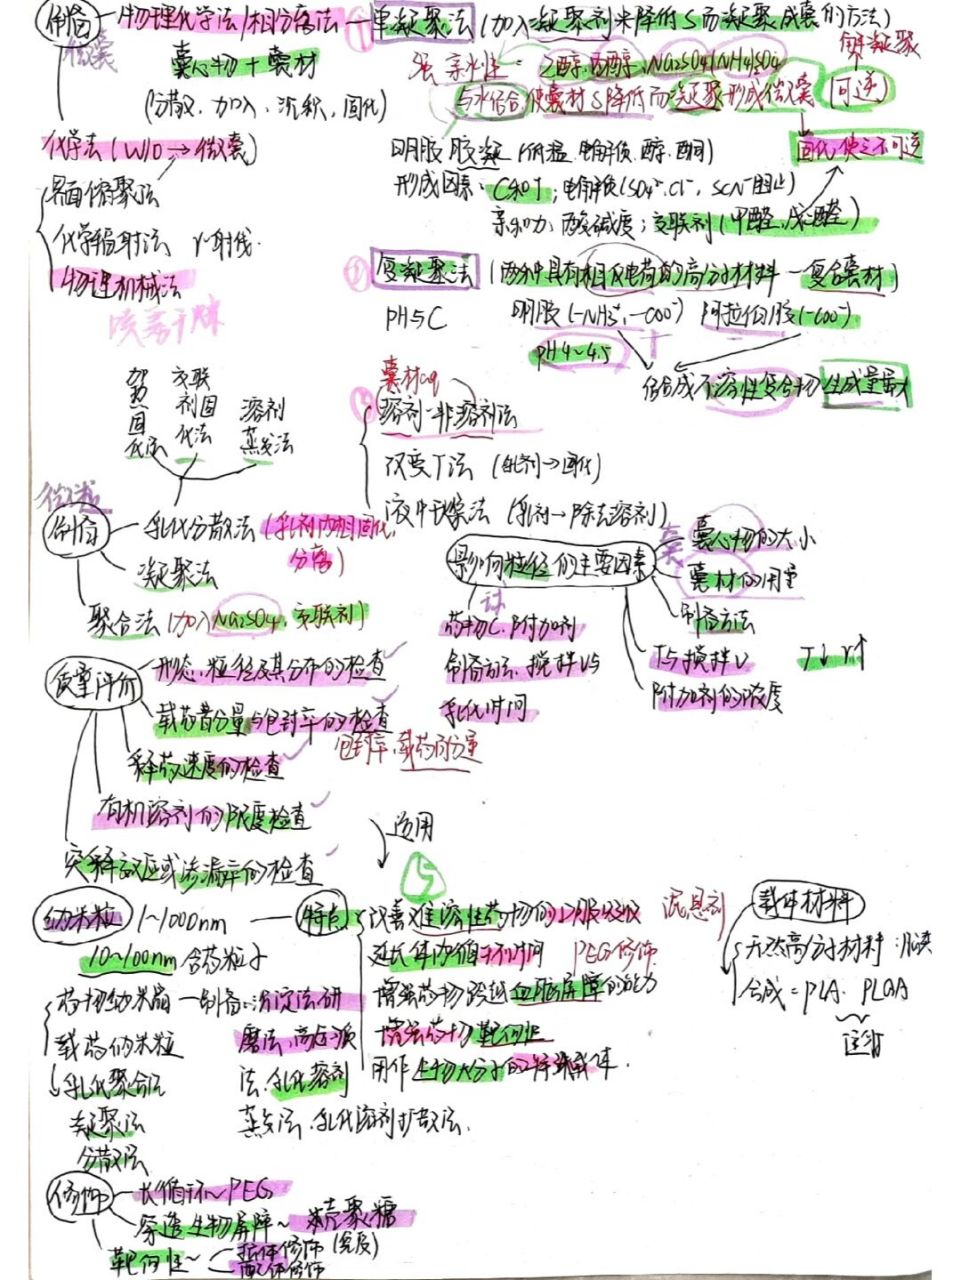 制备 — 物理化学法/相分离法 — ① 单凝聚法 (加入凝聚剂来降低S而凝聚成囊的方法)
微囊
囊心物 + 囊材
(分散、加入、沉积、固化)
解凝聚
强亲水性 = 乙醇、丙醇、Na2SO4、(NH4)2SO4
与水结合,使囊材S降低而凝聚形成微囊 (可逆)
固化使之不可逆
明胶 胶凝 (低温、电解质、醇、酮)
形成因素: C和T, 电解质(SO4²⁻ Cl⁻, SCN⁻阻止)
亲和力, 酸碱度; 交联剂 (甲醛、戊二醛)
化学法 (W/O → 微囊)
界面缩聚法
化学辐射法 γ-射线.
物理机械法
喷雾干燥
② 复凝聚法 (两种具有相反电荷的高分子材料 — 复合囊材)
PH 5 C
明胶 (-NH3⁺, -COO⁻) 阿拉伯胶(-COO⁻)
pH4~4.5
结合成不溶性复合物 生成量最大
囊材aq
溶剂-非溶剂法
改变T法 (乳剂→固化)
液中干燥法 (乳剂→除去溶剂)
加热固化法
交联剂固化法
溶剂蒸发法
微球
制备 — 乳化分散法 (乳剂内相固化,分离)
凝聚法
聚合法 (加入Na2SO4、交联剂)
影响粒径的主要因素
囊
囊心物的大小
囊材的用量
制备方法
T与搅拌V T↓ r↑
附加剂的浓度
药物C、附加剂
制备方法、搅拌V与
乳化时间
质量评价
形态、粒径及其分布的检查
载药百分量与包封率的检查
包封率、载药百分量
释药速度的检查
有机溶剂的限度检查
突释效应或渗漏率的检查
适用
5
纳米粒 1~1000nm — 特点
10~100nm 含药粒子
改善难溶性药物的口服吸收 混悬剂
延长体内循环时间 PEG修饰
增强药物跨越血脑屏障的能力
增强药物靶向性
用作生物大分子的特殊载体.
药物纳米晶 — 制备: 沉淀法、研磨法、高压均质法、乳化溶剂蒸发法、乳化溶剂扩散法.
载药纳米粒
乳化聚合法
凝聚法
分散法
载体材料
天然高分子材料:
合成 = PLA、PLGA
修饰
长循环~PEG
穿透生物屏障~ 壳聚糖
靶向性~ 抗体修饰 (免疫)
配体修饰